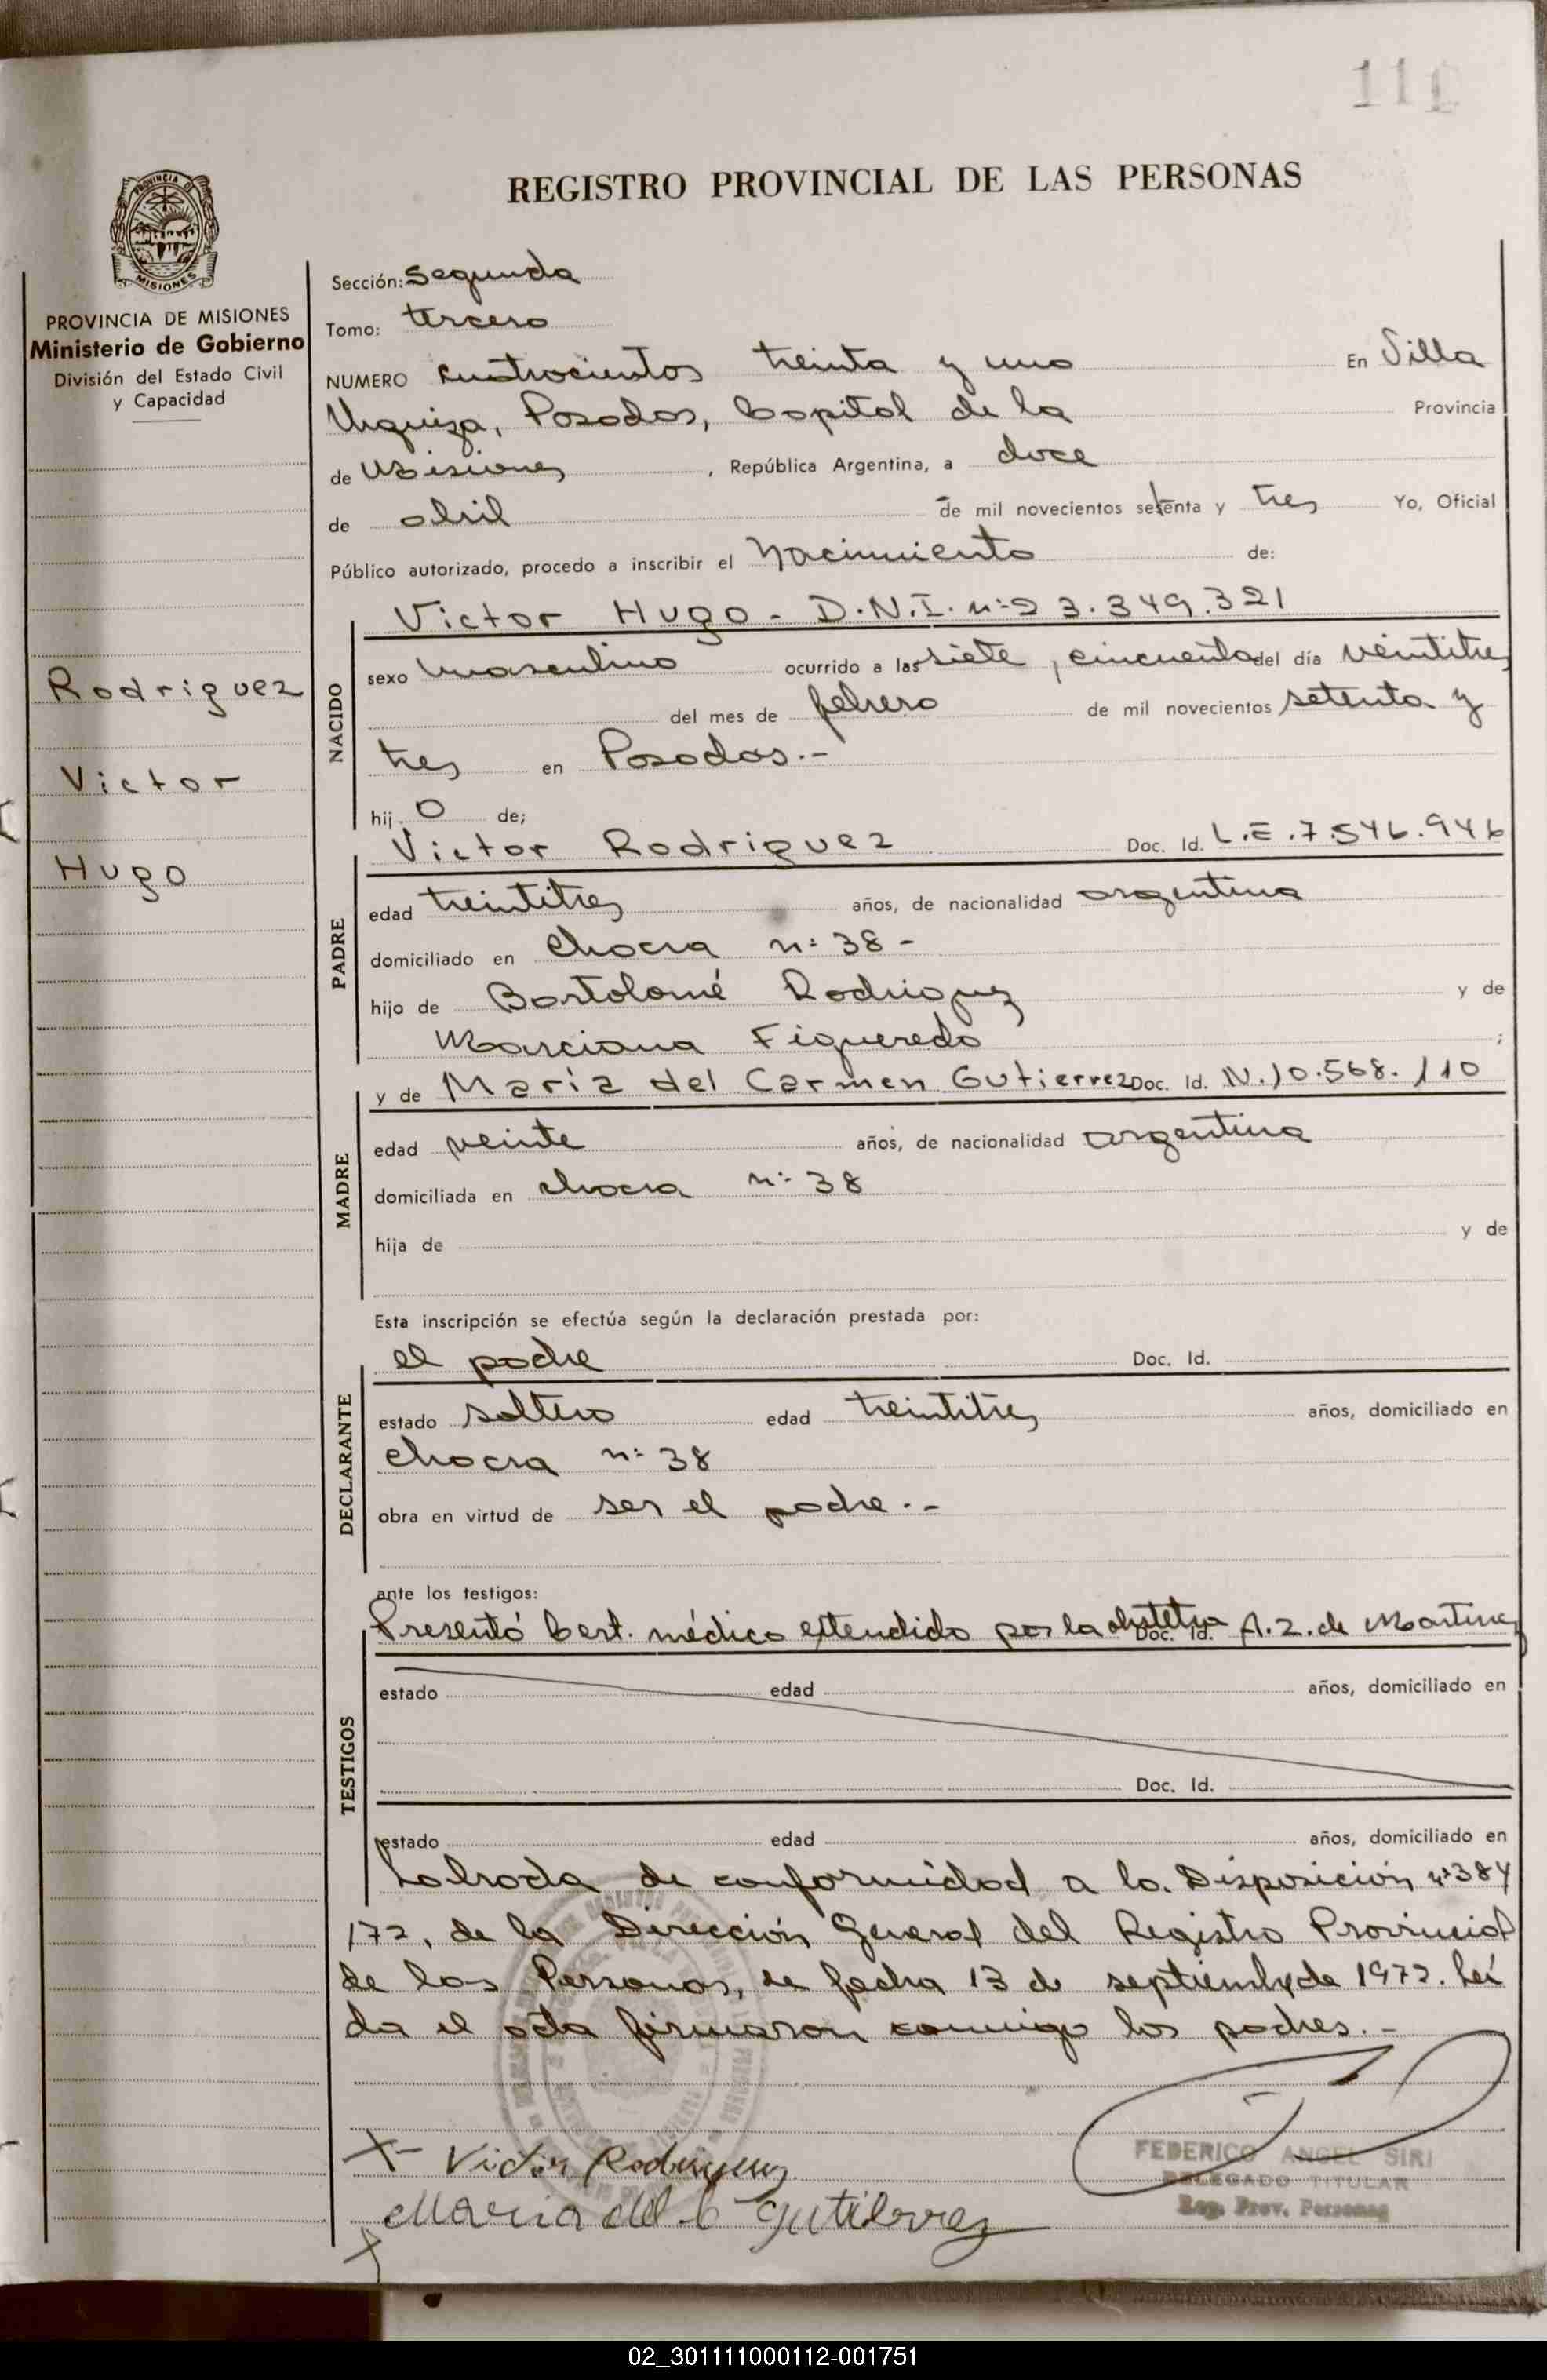 111
REGISTRO PROVINCIAL DE LAS PERSONAS
PROVINCIA DE
MISIONES
PROVINCIA DE MISIONES
Ministerio de Gobierno
División del Estado Civil
y Capacidad
Rodriguez
Victor
Hugo
Sección: Segunda
Tomo: tercero
NUMERO cuatrocientos treinta y uno En Villa
Urquiza, Posadas, Capital de la Provincia
de Misiones, República Argentina, a doce
de abril de mil novecientos setenta y tres Yo, Oficial
Público autorizado, procedo a inscribir el Nacimiento de:
Victor Hugo - D.N.I. nº 23.349.321
NACIDO
sexo masculino ocurrido a las siete, cincuenta del día veintitres
del mes de febrero de mil novecientos setenta y
tres en Posadas.-
hij o de;
Victor Rodriguez Doc. Id. L.E.7.546.946
PADRE
edad treintitres años, de nacionalidad argentina
domiciliado en chacra nº 38 -
hijo de Bartolomé Rodriguez y de
Marciana Figueredo ;
y de María del Carmen Gutierrez Doc. Id. N.10.568.110
MADRE
edad veinte años, de nacionalidad argentina
domiciliada en chacra nº 38
hija de y de
Esta inscripción se efectúa según la declaración prestada por:
el padre Doc. Id.
DECLARANTE
estado soltero edad treintitres años, domiciliado en
chacra nº 38
obra en virtud de ser el padre.-
ante los testigos:
Presentó Cert. médico extendido por la obstetra Doc. Id. A.Z. de Martinez
TESTIGOS
estado edad años, domiciliado en
Doc. Id.
estado edad años, domiciliado en
Labrada de conformidad a la Disposición nº 384
/72, de la Dirección General del Registro Provincial
de las Personas, de fecha 13 de septiembre de 1972. Leí
da el acta firmaron conmigo los padres.-
X- Victor Rodriguez
Maria del C Gutierrez
X
FEDERICO ANGEL SIRI
DELEGADO TITULAR
Reg. Prov. Personas
02_301111000112-001751